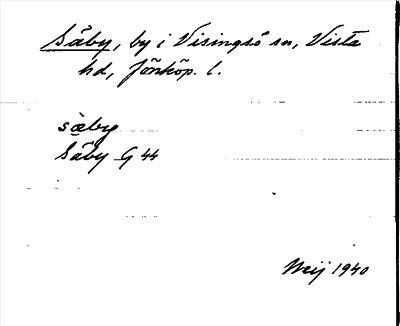 Säby, by i Visingsö sn, Vista
hd, Jönköp. l.
sä̀by
Säby G 44
Meij 1940